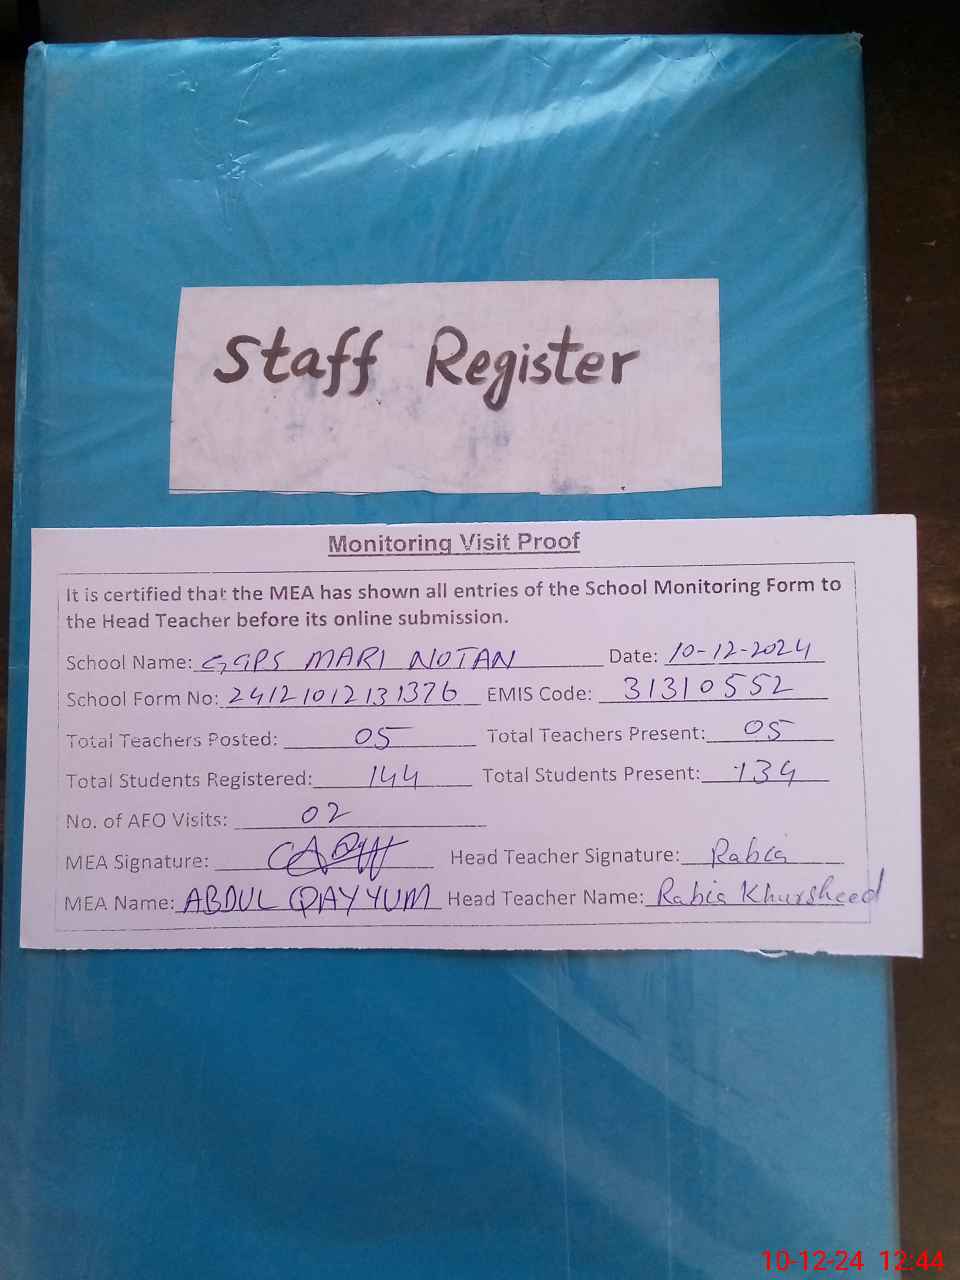 Staff Register
Monitoring Visit Proof
It is certified that the MEA has shown all entries of the School Monitoring Form to
the Head Teacher before its online submission.
School Name: GGPS MARI NOTAN Date: 10-12-2024
School Form No: 24121012131376 EMIS Code: 31310552
Total Teachers Posted: 05 Total Teachers Present: 05
Total Students Registered: 144 Total Students Present: 134
No. of AEO Visits: 02
MEA Signature: Head Teacher Signature: Rabia
MEA Name: ABDUL QAYYUM Head Teacher Name: Rabia Khursheed
10-12-24 12:44